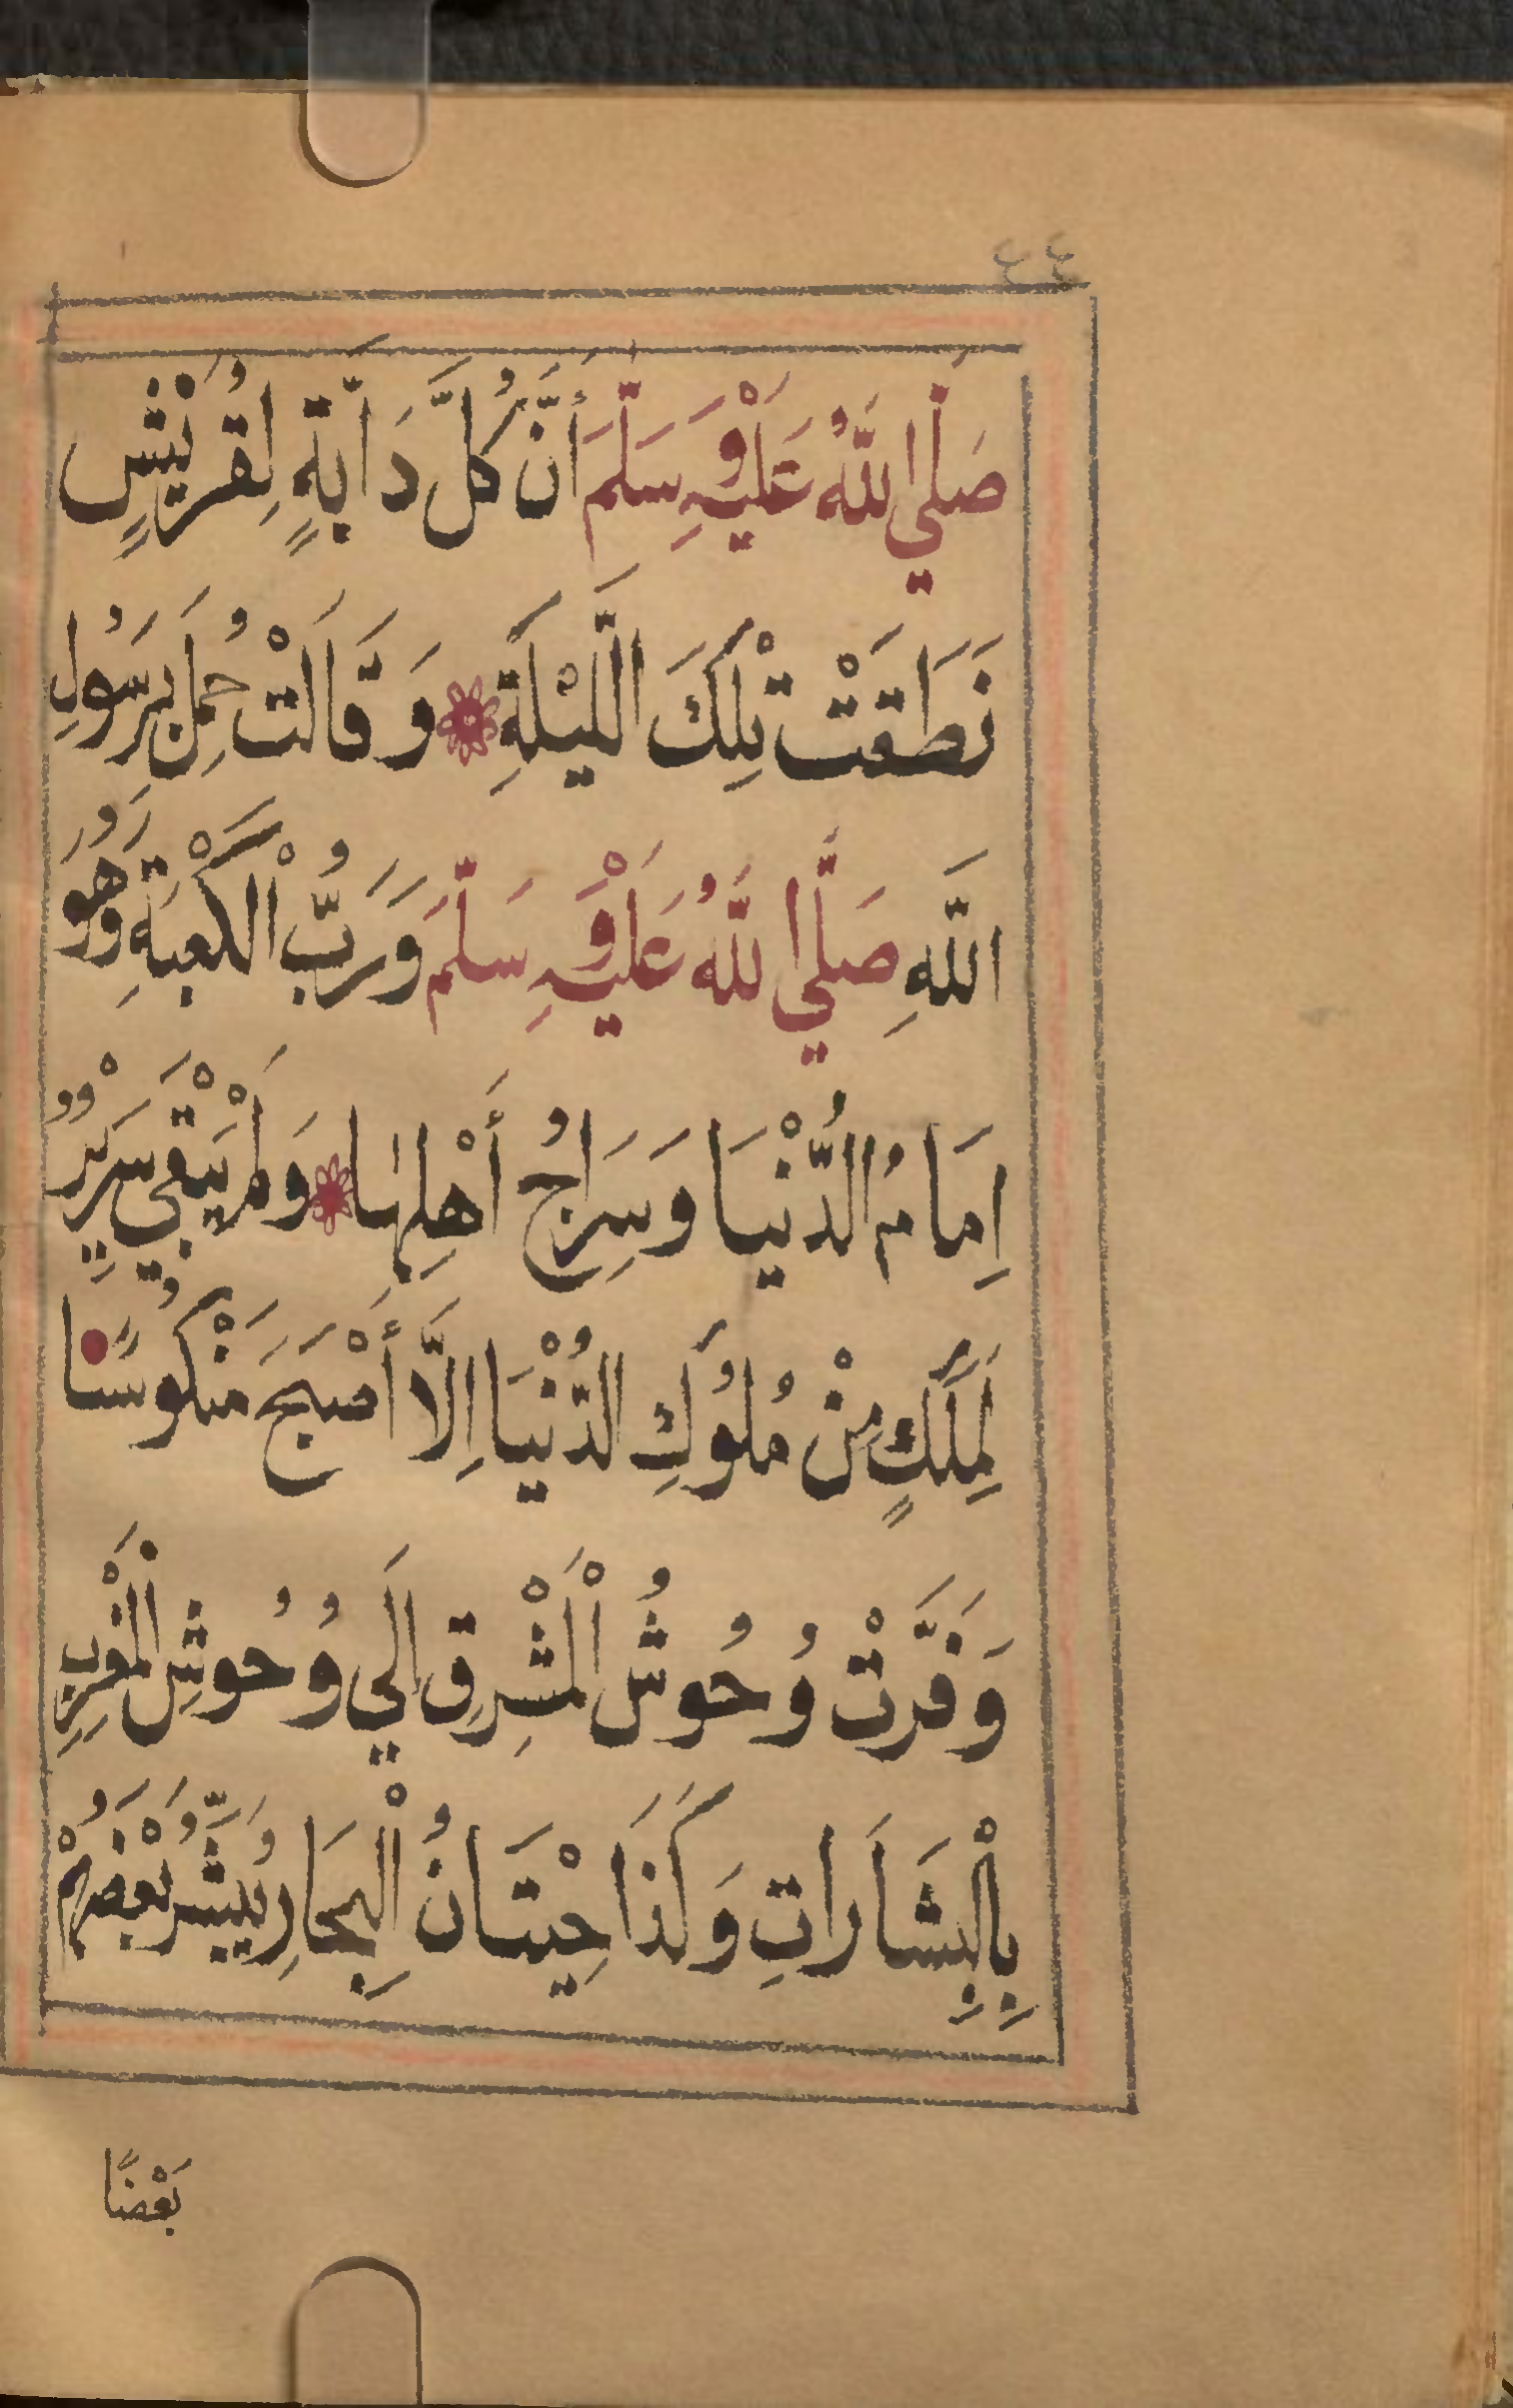 ٤٤
صَلَّي اللهُ عَلَيْهِ وَسَلَّمَ أَنَّ كُلَّ دَآبَّةٍ لِقُرَيْشٍ
نَطَقَتْ تِلْكَ اللَّيْلَةِ وَقَّالَتْ حُمِلَ بِرَسُولِ
اللَّهِ صَلَّي اللَّهُ عَلَيْهِ وَسَلَّمَ وَرَبُّ الْكَعْبَةِ وَهُوَ
اِمَامُ الدُّنْيَا وَسِرَاجُ أَهْلِهَا وَلَمْ يَبْقَي سَرِيْرٌ
لِمَلَكٍ مِنْ مُلُوُكِ الدُّنْيَا اِلَّا أَصْبَحَ مَنْكُوسًا
وَفَرَّتْ وُحُوشُ الْمَشْرِقِ اِلَي وُحُوشِ الْمَغْرِبِ
بِالْبِشَارَاتِ وَكَذَا حِيْتَانُ الْبِحَارِ يُبَشِّرُ بَعْضُهُمْ
بَعْضًا